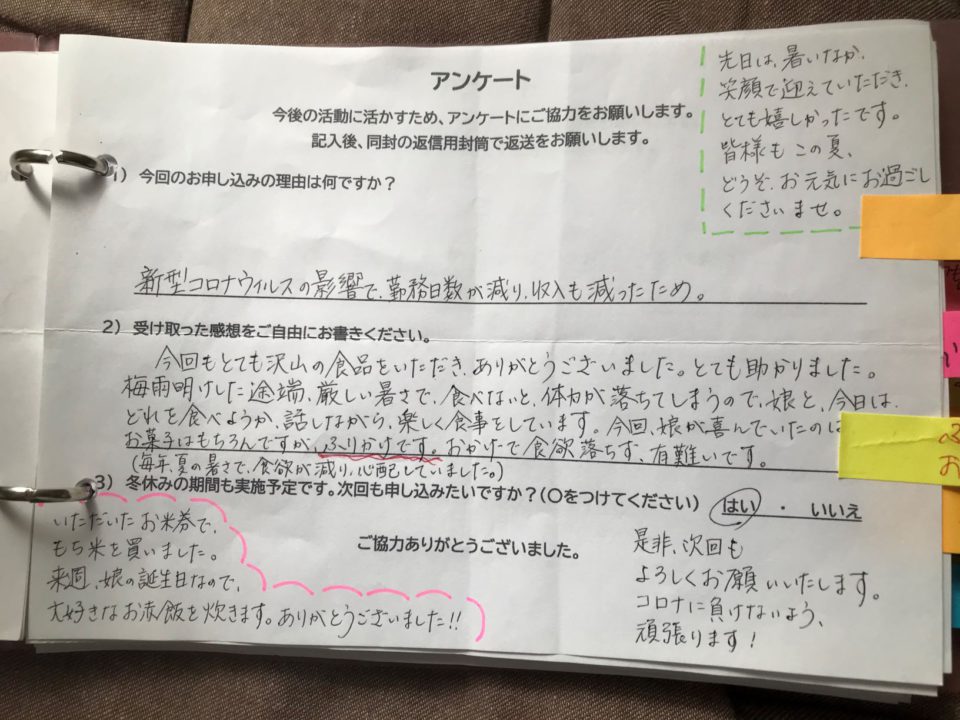 アンケート
今後の活動に活かすため、アンケートにご協力をお願いします。
記入後、同封の返信用封筒で返送をお願いします。
先日は、暑いなか、
笑顔で迎えていただき、
とても嬉しかったです。
皆様も この夏、
どうぞ、お元気にお過ごし
くださいませ。
1) 今回のお申し込みの理由は何ですか?
新型コロナウィルスの影響で、勤務日数が減り、収入も減ったため。
2) 受け取った感想をご自由にお書きください。
今回もとても沢山の食品をいただき、ありがとうございました。とても助かりました。
梅雨明けした途端、厳しい暑さで、食べないと、体力が落ちてしまうので、娘と、今日は、
どれを食べようか、話しながら、楽しく食事をしています。今回、娘が喜んでいたのは
お菓子はもちろんですが、ふりかけです。おかげで食欲落ちず、有難いです。
(毎年、夏の暑さで、食欲が減り、心配していました。)
3) 冬休みの期間も実施予定です。次回も申し込みたいですか?(○をつけてください) はい ・ いいえ
いただいたお米券で、
もち米を買いました。
来週、娘の誕生日なので、
大好きなお赤飯を炊きます。ありがとうございました!!
ご協力ありがとうございました。
是非、次回も
よろしくお願いいたします。
コロナに負けないよう、
頑張ります!
い
ふ
お